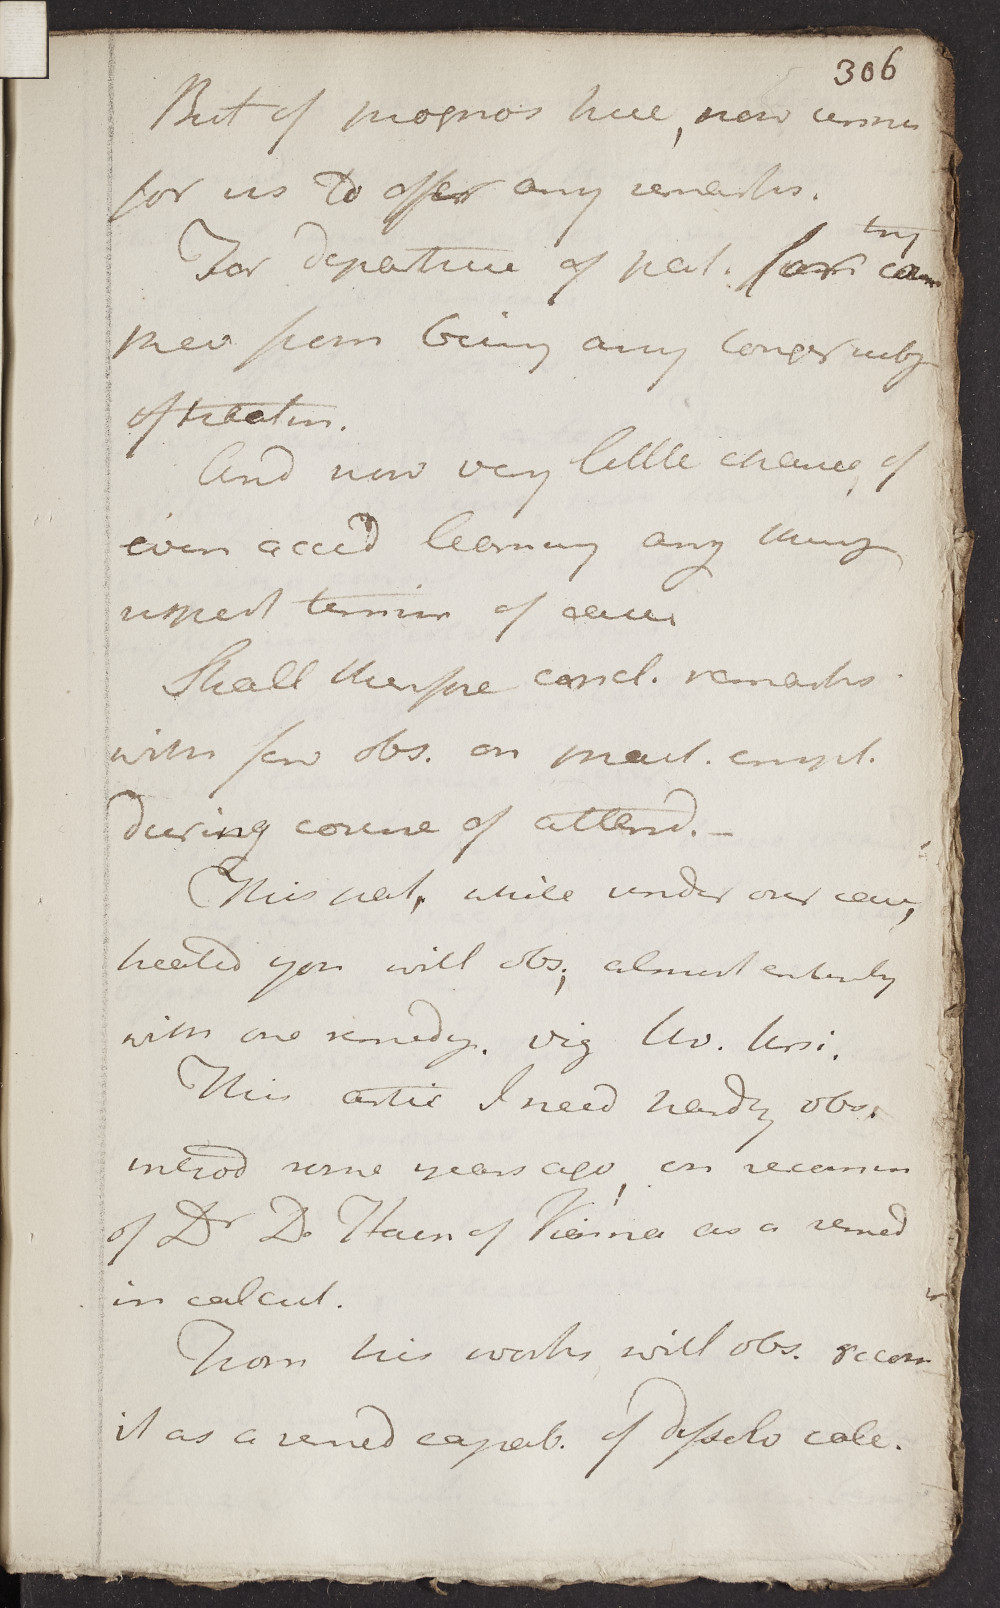 306
But of prognos here, now unnec
for us to offer any remarks.
For departure of pat. for coun
try
prev from being any longer subj
of treatm.
And now very little chance, of
even accid learning any thing
respect termin of case
Shall therefore concl. remarks
with few obs. on pract. empl.
during course of attend. —
This pat, while under our care,
treated you will obs, almost entirely
with one remedy. viz Uv. Ursi.
This artic I need hardly obs.
introd some years ago, on recomm
of Dr De Haen of Vienna as a remed
in calcul.
From his works will obs. recom
it as a remed capab. of dissolv calc.